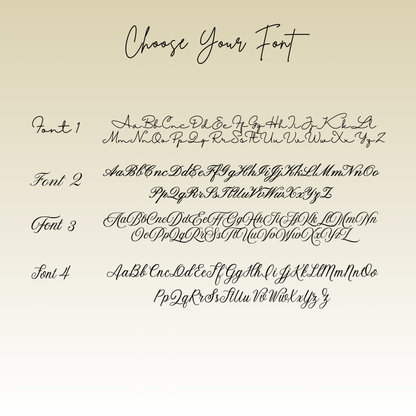 Choose Your Font
Font 1 AaBbCncDdEeIfGgHhIiJnKkLl
MmNnOoPpQqRrSsTtUuVvWwXxYyZz
Font 2 AaBbCcnDdEeFfGgHhIiJjKkLlMmNnOo
PpQqRrSsTtUuVvWwXxYyZz
Font 3 AaBbCneDdEeFfGgHhIiJjKkLlMmNn
OoPpQqRrSsTtUuVvWwXxYyZz
Font 4 AaBbCncDdEeFfGgHhIiJjKkLlMmNnOo
PpQqRrSsTtUuVvWwXxYyZz